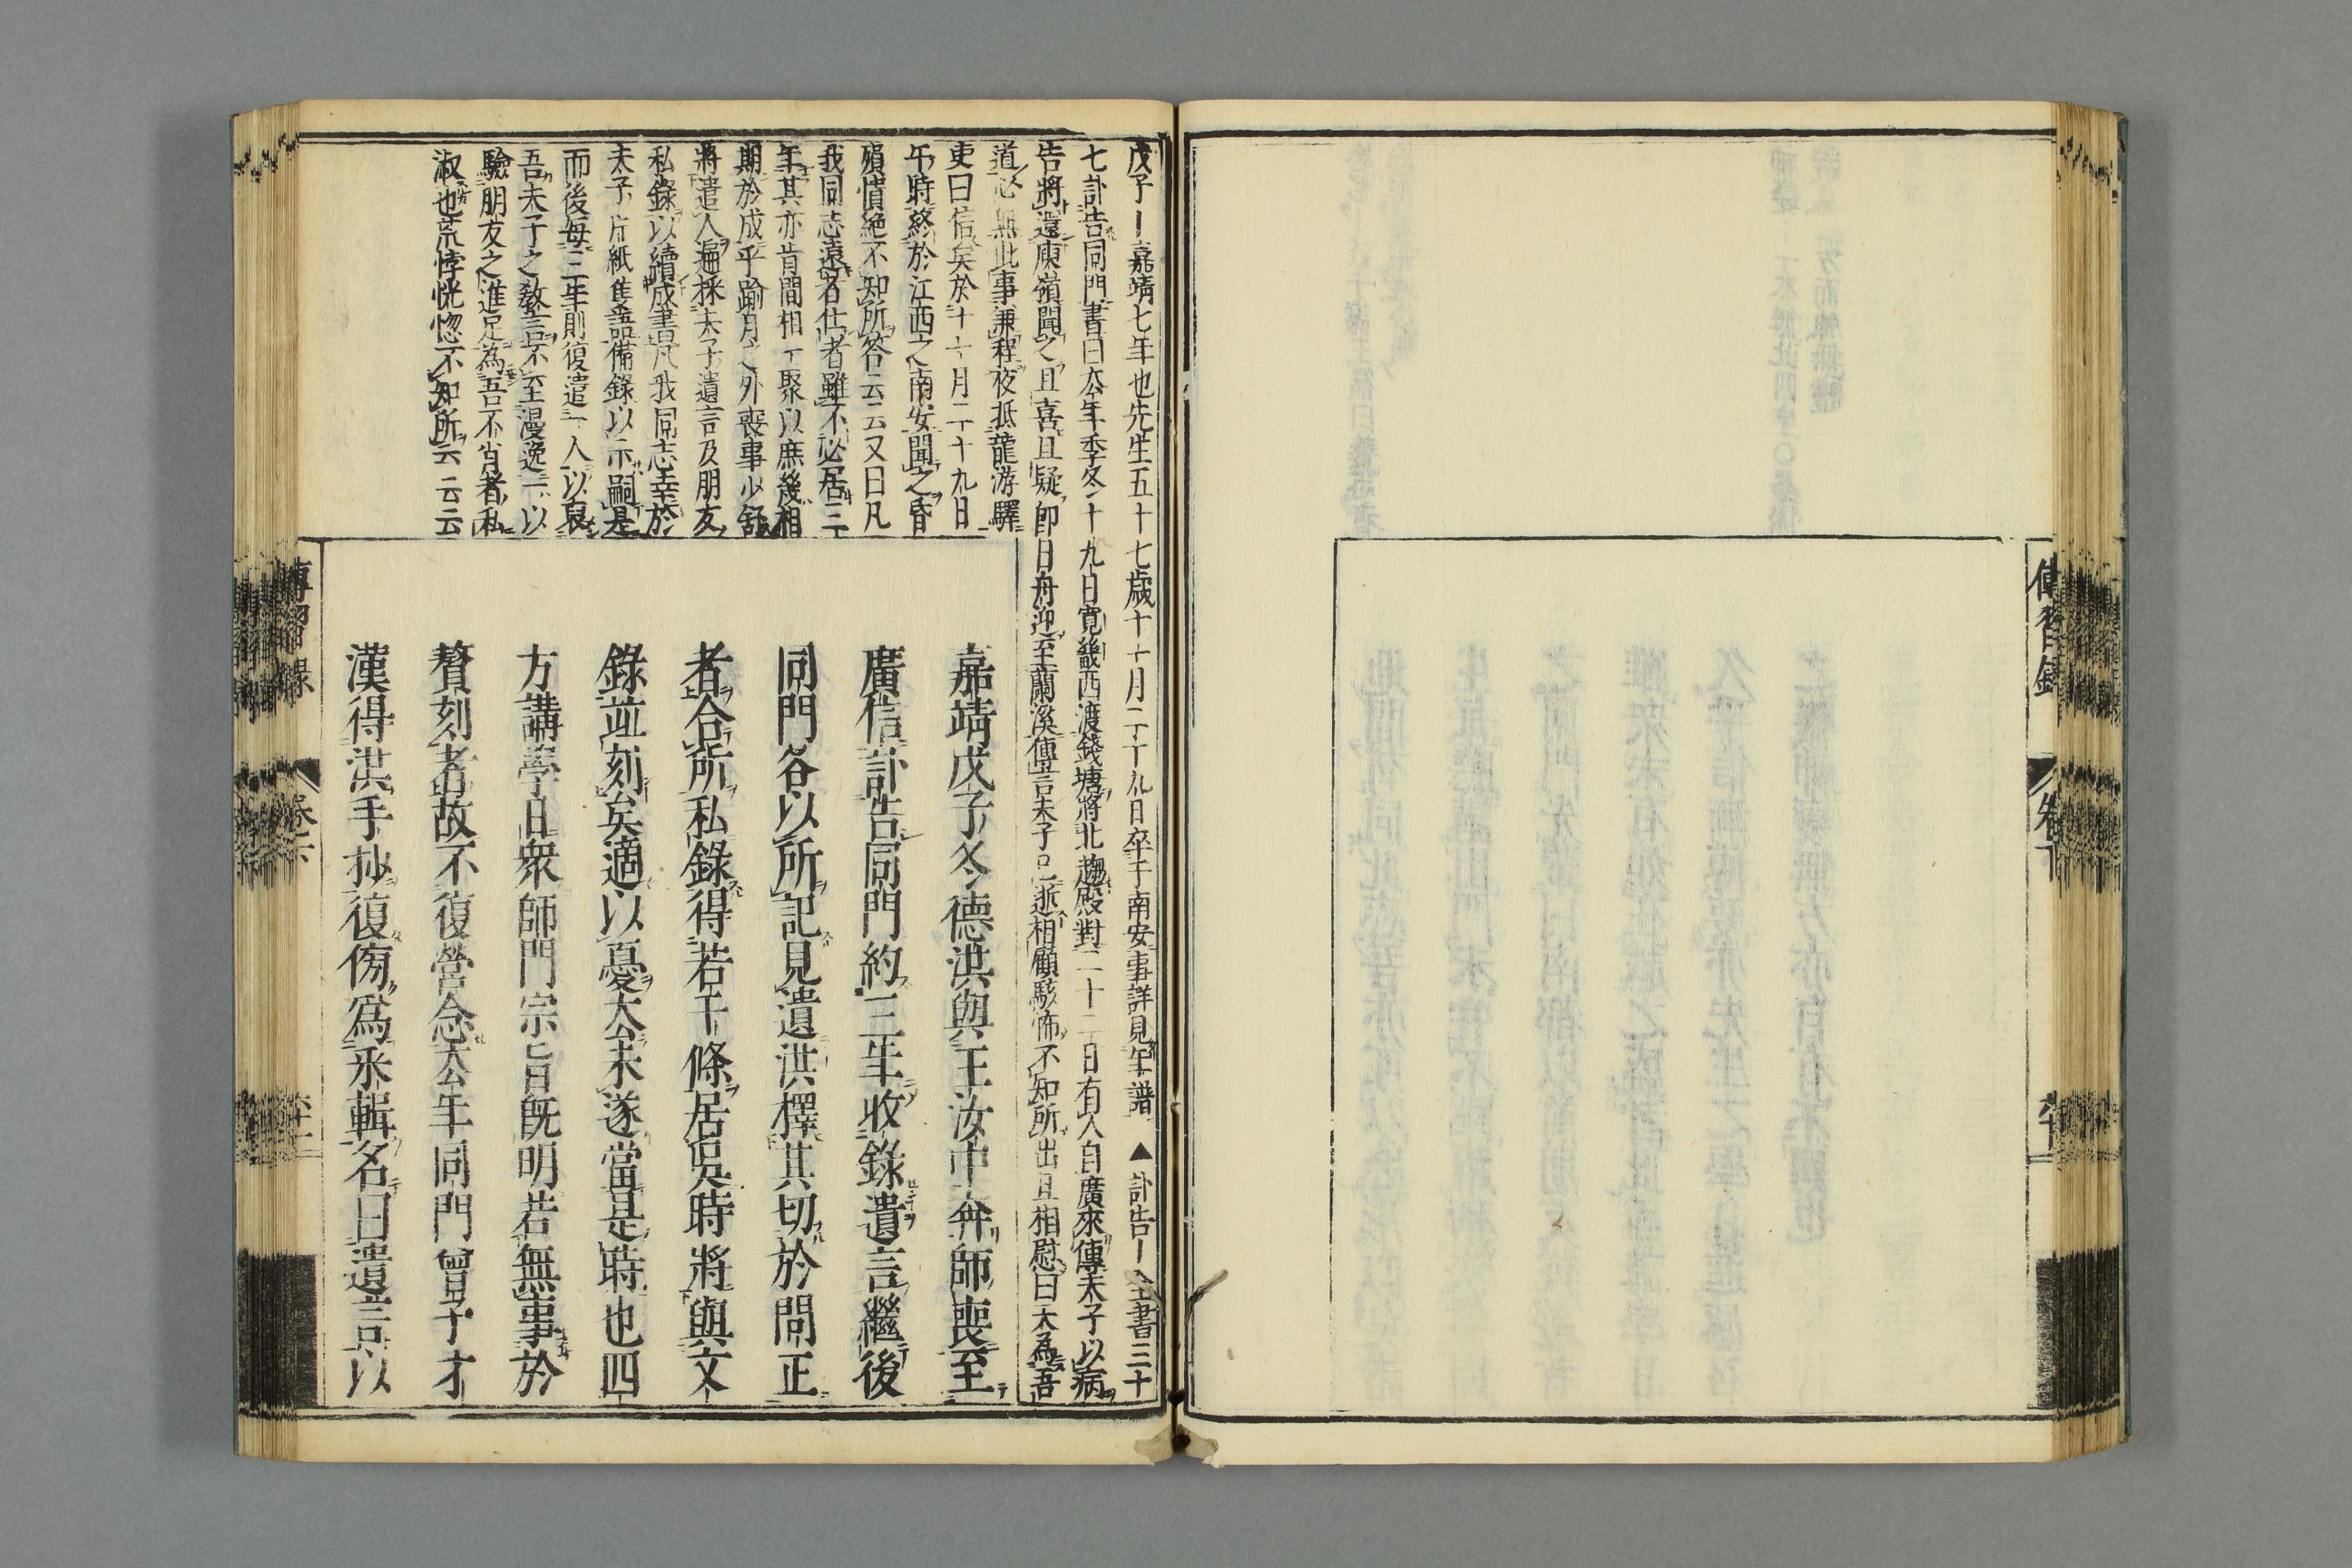 傳習錄
卷下
六十
戊子ー嘉靖七年也先生五十七歲十十一月二十九日卒于南安事詳見年譜▲訃告ー全書三十
七訃告同門書曰去年季冬十九日寛畿西渡錢塘將北趨殿對二十二日有人自廣來傳夫子以病
告將還庾嶺聞之且喜且疑即日舟迎至蘭溪傳言夫子已逝相顧駭怖不知所出且相慰曰天為吾
道必無此事兼程夜抵龍游驛
吏曰信矣於十一月二十九日
午時終於江西之南安聞之昏
殞憒絶不知所答云云又曰凡
我同志遠者仕者雖不必居三
年其亦肯間相一聚以庶幾相
期於成乎踰月之外喪事少舒
將遣人遍採夫子遺言及朋友
私錄以續成書凡我同志幸於
夫子片紙隻語備錄以示嗣是
而後每三年則復遣一人以裒
吾夫子之教言不至漫逸一以
驗朋友之進足為吾不肖者私
淑也荒悖恍惚不知所云云云
嘉靖戊子冬德洪與王汝中奔師喪至
廣信訃告同門約三年收錄遺言繼後
同門各以所記見遺洪擇其切於問正
者合所私錄得若干條居吳時將與文
錄並刻矣適以憂去未遂當是時也四
方講學日衆師門宗旨既明若無事於
贅刻者故不復營念去年同門曾子才
漢得洪手抄復傍為采輯名曰遺言以
傳習錄
卷下
六十一